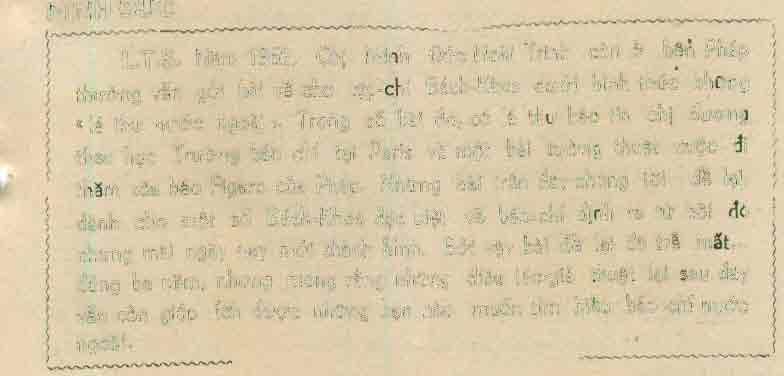 L.T.S. Năm 1962, Chị Minh Đức Hoài Trinh còn ở bên Pháp
thường vẫn gửi bài về cho tạp-chí Bách-Khoa dưới hình thức những
« lá thư nước ngoài ». Trong số bài đó, có lá thư báo tin chị đương
theo học Trường báo chí tại Paris và một bài tường thuật cuộc đi
thăm tòa báo Figaro của Pháp. Những bài trên đây chúng tôi để lại
dành cho một số Bách-Khoa đặc biệt về báo-chí định ra từ hồi đó
nhưng mãi ngày nay mới thành hình. Bởi vậy bài để lại đã trễ mất
đúng ba năm, nhưng mong rằng những điều tác-giả thuật lại sau đây
vẫn còn giúp ích được những bạn nào muốn tìm hiểu báo-chí nước
ngoài.